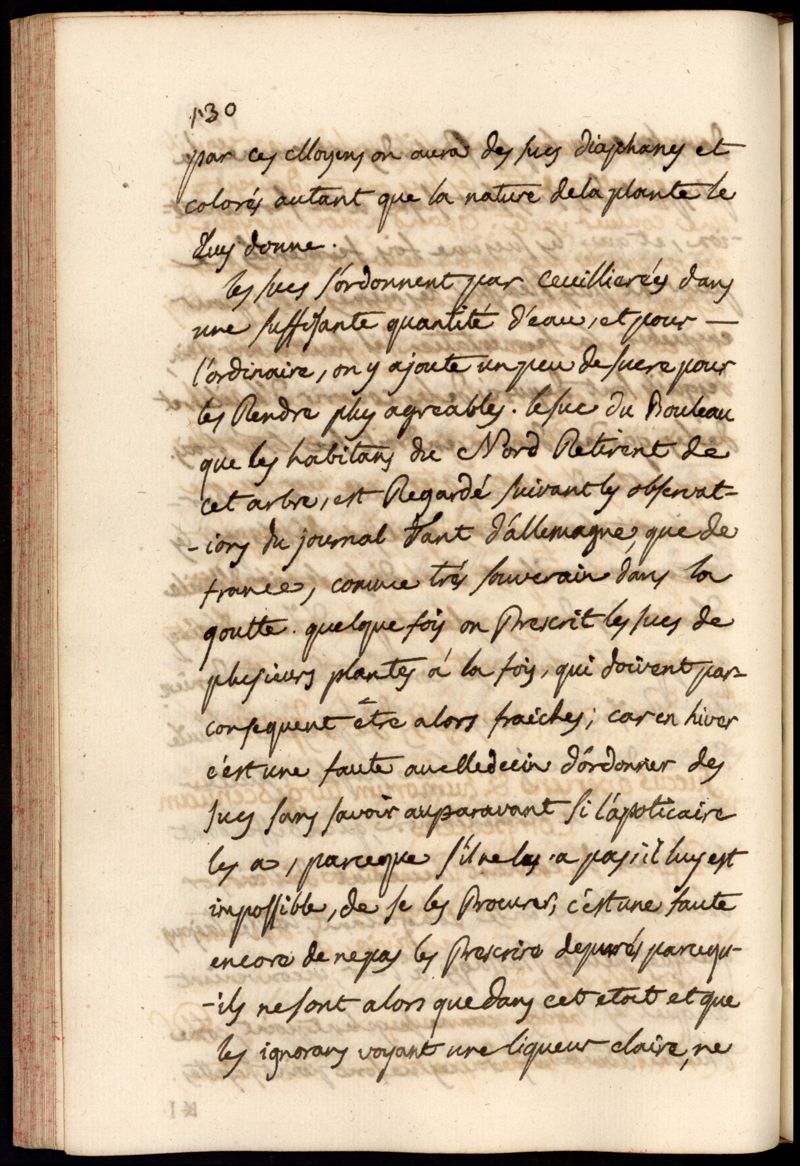 130
par ces Moyens on aura des sucs diaphanes et
colorés autant que la nature dela plante le
Luy donne.
les sucs s'ordonnent par ceuillierées dans
une suffisante quantité d'eau, et pour —
l'ordinaire, on y ajoute un peu de sucre pour
les Rendre plus agreables. le suc du Bouleau
que les habitans du Nord Retirent de
cet arbre, est Regardé suivant les observat-
-ions du journal Tant d'allemagne, que de
france, comme trés souverain dans la
goutte. quelque fois on Prescrit les sucs de
plusieurs plantes á la fois, qui doivent par=
consequent être alors fraiches; car en hiver
c'est une faute au Medecin d'ordonner des
sucs sans savoir auparavant si l'apoticaire
les a, parceque s'il ne les a pas, il luy est
impossible, de se les Procurer, c'est une faute
encore de ne pas les Prescrire depurés parcequ-
-ils ne sont alors que dans cet etat et que
les ignorans voyant une liqueur claire, ne